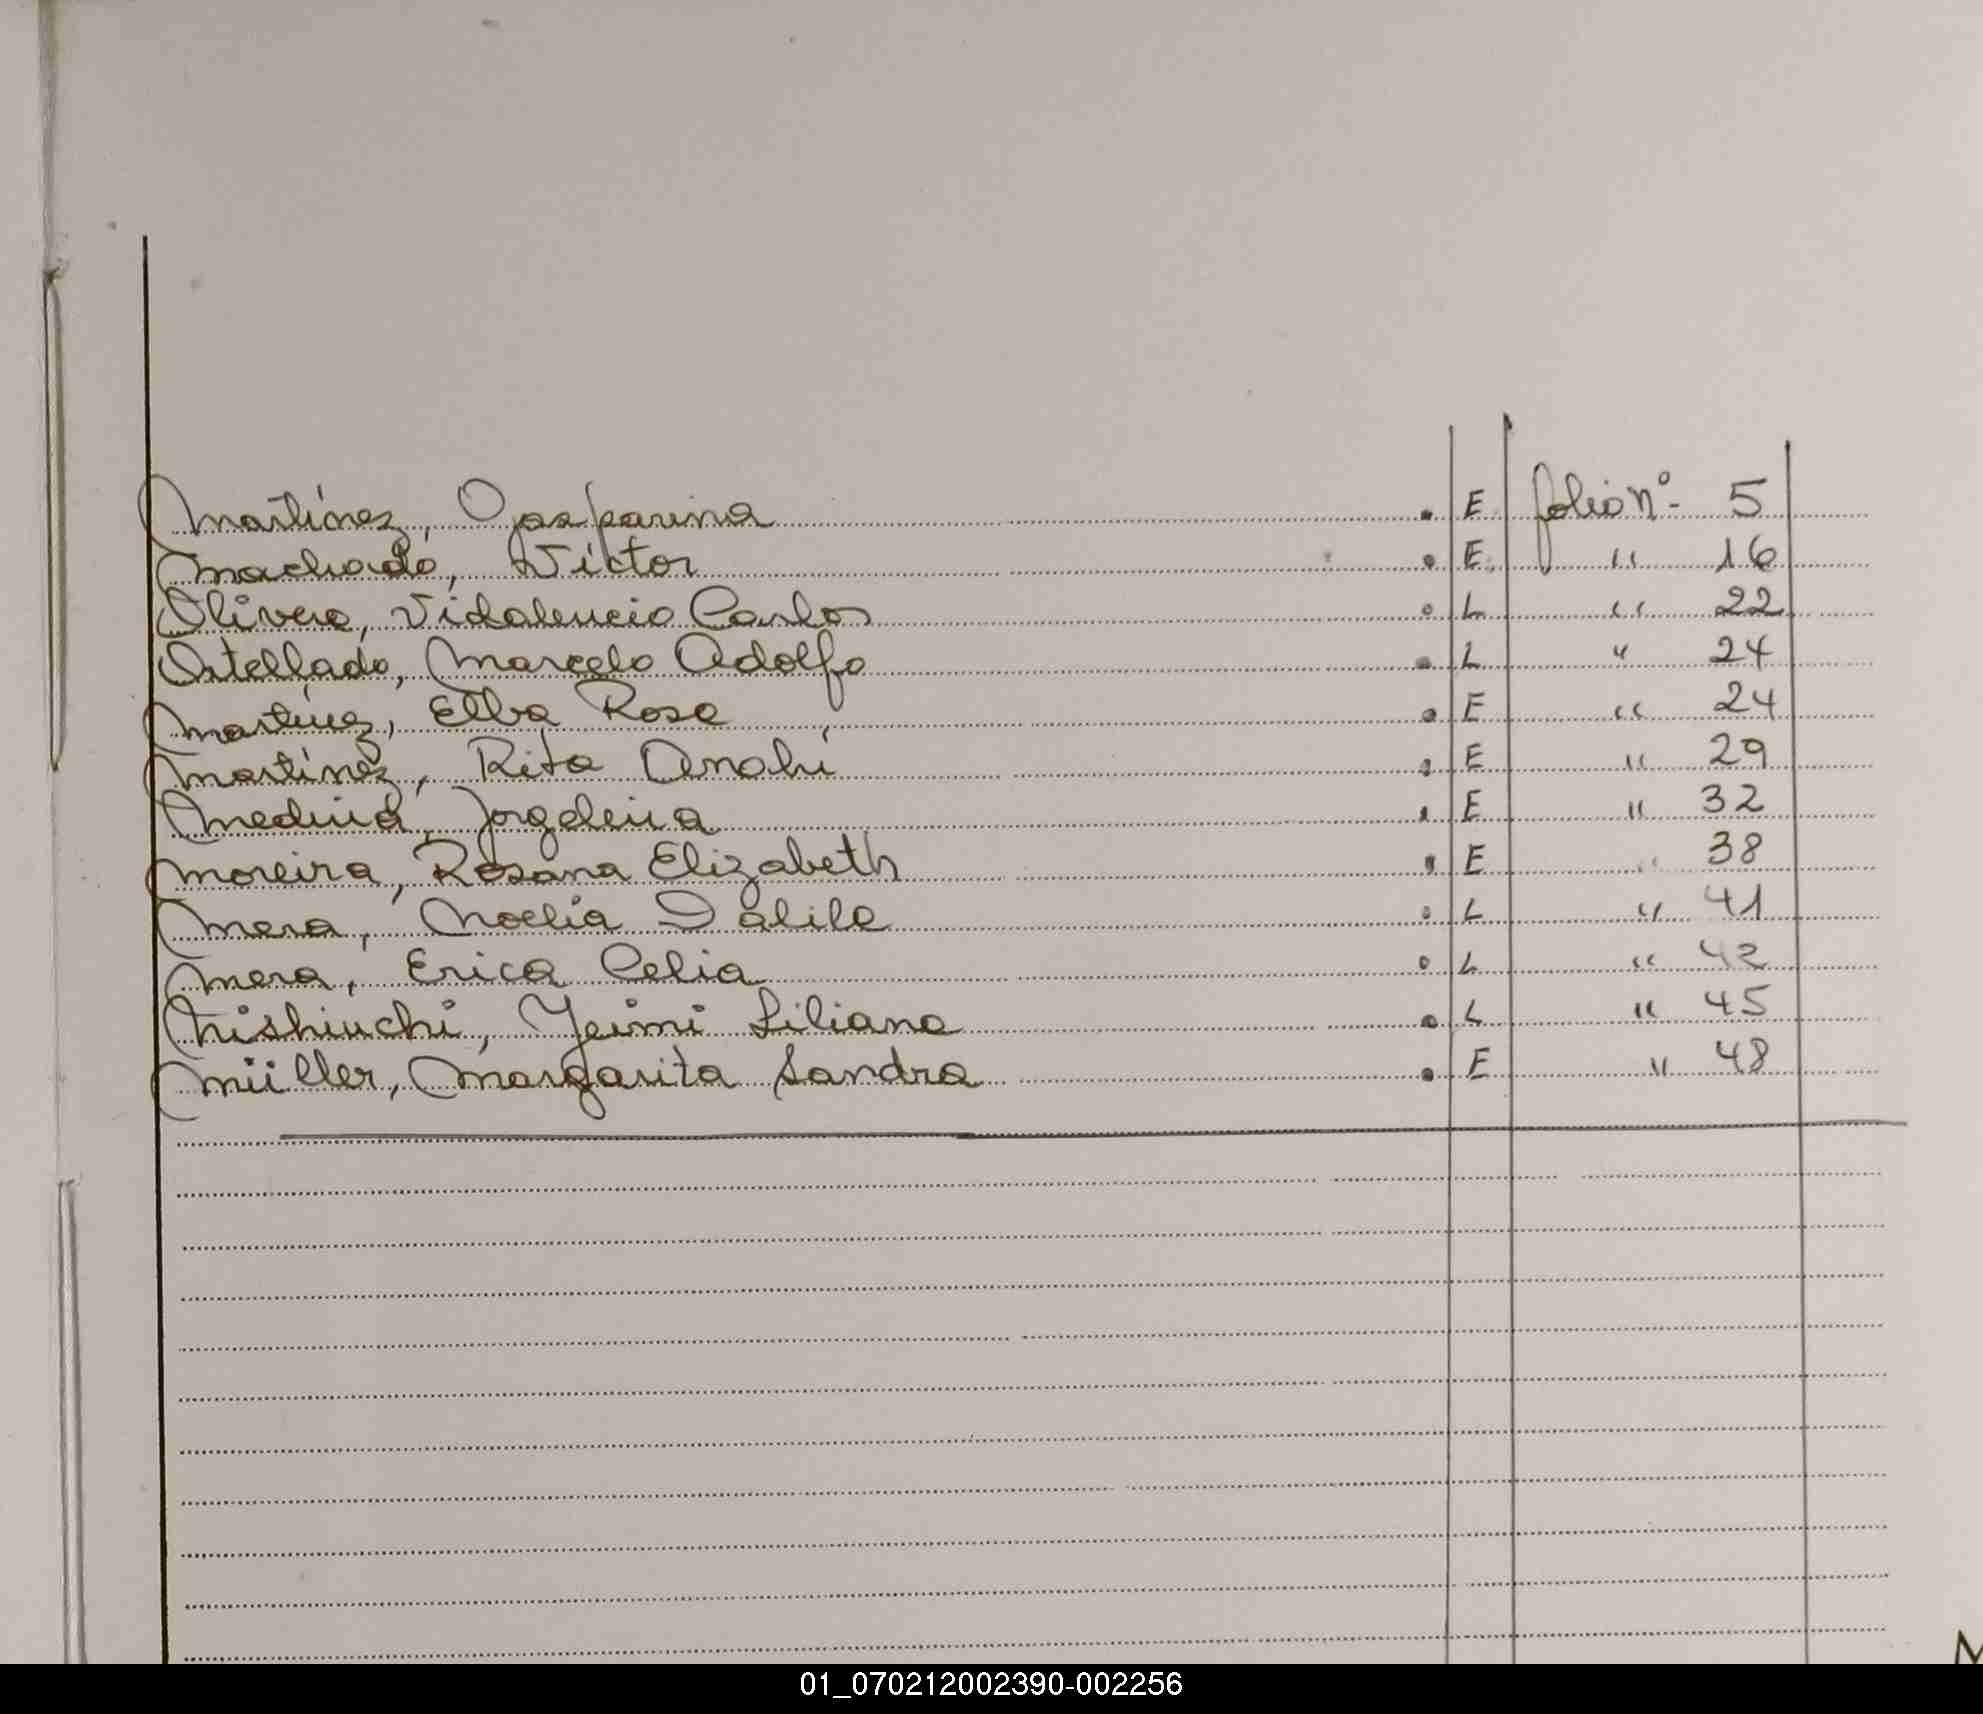 Martínez, Gasparina . E folio Nº- 5
Machado, Víctor . E. " 16
Olivera, Vidalencio Carlos . L " 22
Ostellado, Marcelo Adolfo . L " 24
Martínez, Elba Rosa . E " 24
Martínez, Rita Anahí . E " 29
Medina, Jorgelina . E " 32
Moreira, Rosana Elizabeth . E " 38
Mera, Noelia Dalila . L " 41
Mera, Erica Celia . L " 42
Nishiuchi, Yeimi Liliana . L " 45
Müller, Margarita Sandra . E " 48
M
01_070212002390-002256